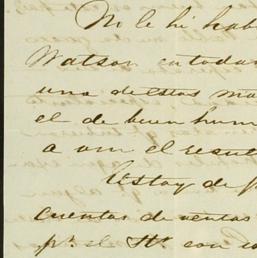 No le hé hab
Watson en todas
una de estas ma
el de buen hum
a om el resul
Estoy de p
cuentas de ventas
pr. el Sr. con